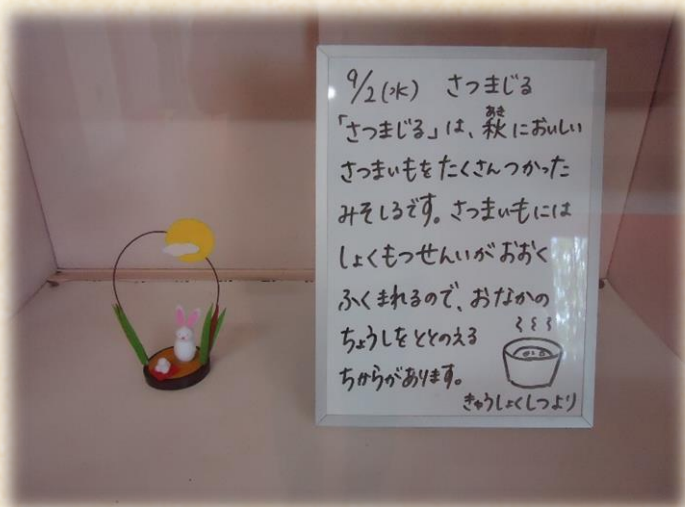 9/2(水) さつまじる
「さつまじる」は、秋(あき)においしい
さつまいもをたくさんつかった
みそしるです。さつまいもには
しょくもつせんいがおおく
ふくまれるので、おなかの
ちょうしをととのえる
ちからがあります。
きゅうしょくしつより